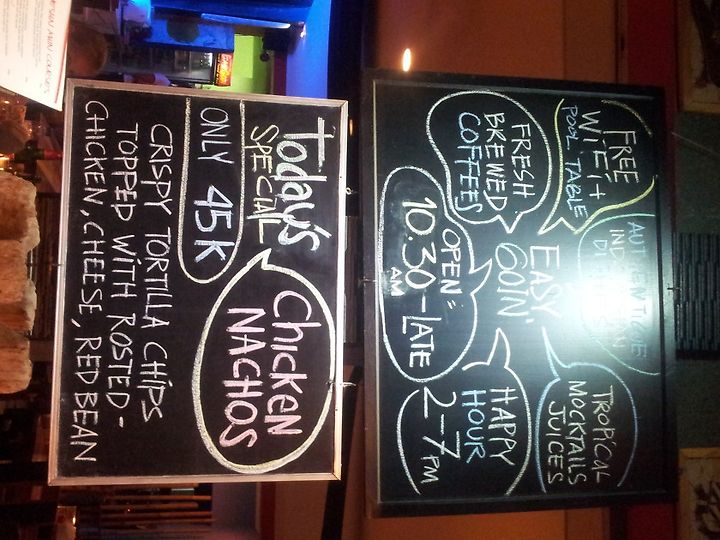 FREE
WIFI +
POOL TABLE
TROPICAL
MOCKTAILS
JUICES
FRESH
BREWED
COFFEES
EASY
GOIN'
HAPPY
HOUR
2-7 PM
OPEN =
10.30 - LATE
AM
Today's
SPECIAL
Chicken
NACHOS
ONLY 45K
CRISPY TORTILLA CHIPS
TOPPED WITH ROSTED-
CHICKEN, CHEESE, RED BEAN